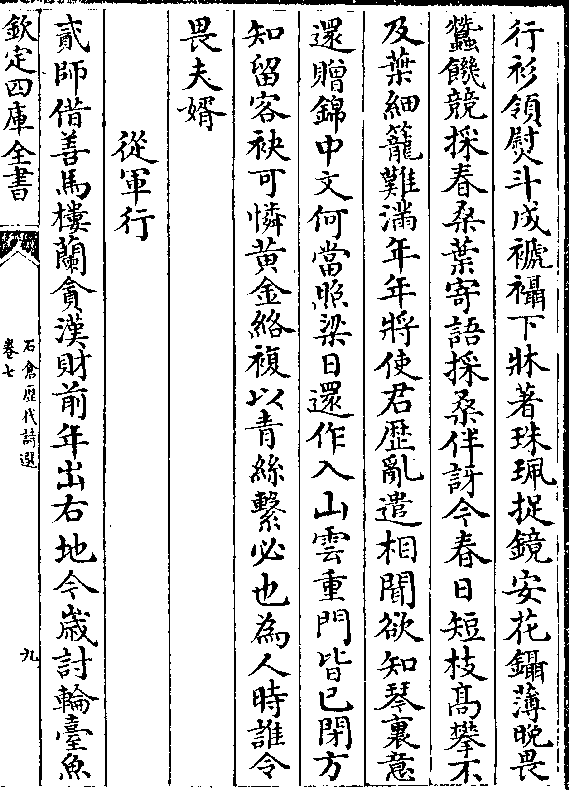 行衫領熨斗成褫襵下牀著珠珮捉鏡安花鑷薄晚畏
蠶饑競採春桑葉寄語採桑伴訝今春日短枝高攀不
及葉細籠難滿年年將使君歴亂遣相聞欲知琴裏意
還贈錦中文何當照梁日還作入山雲重門皆已閉方
知留客袂可憐黄金絡複以青絲繫必也為人時誰令
畏夫婿
從軍行
貳師借善馬樓蘭貪漢財前年出右地今嵗討輪臺魚
欽定四庫全書
石倉歴代詩選
卷七
九